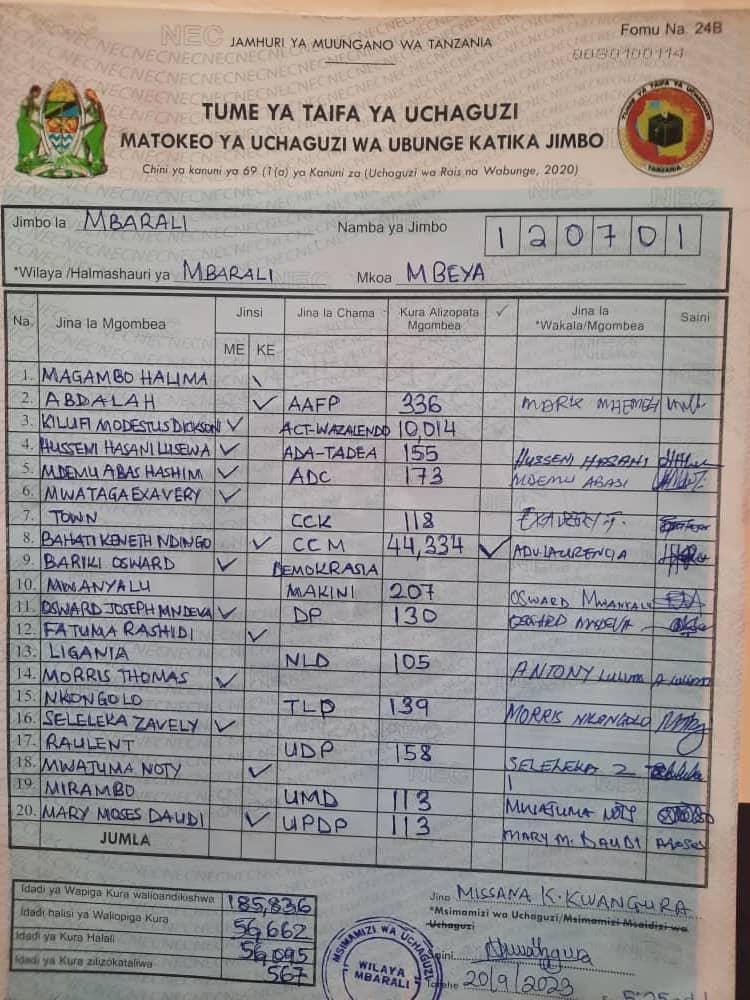 Fomu Na. 24B
JAMHURI YA MUUNGANO WA TANZANIA
0080100114
TUME YA TAIFA YA UCHAGUZI
MATOKEO YA UCHAGUZI WA UBUNGE KATIKA JIMBO
Chini ya kanuni ya 69 (1(a) ya Kanuni za (Uchaguzi wa Rais na Wabunge, 2020)
TUME YA TAIFA YA UCHAGUZI
TANZANIA
Jimbo la MBARALI Namba ya Jimbo 120701
*Wilaya /Halmashauri ya MBARALI Mkoa MBEYA
Na. Jina la Mgombea Jinsi Jina la Chama Kura Alizopata Mgombea ✓ Jina la *Wakala/Mgombea Saini
ME KE
1. MAGAMBO HALIMA
2. ABDALAH ✓ AAFP 336
3. KILUFI MODESTUS DICKSON ✓ ACT-WAZALENDO 10,014
4. HUSSENI HASANI LUSEWA ✓ ADA-TADEA 155 HUSSENI HASANI
5. MDEMU ABAS HASHIM ✓ ADC 173 MDEMU ABASI
6. MWATAGA EXAVERY ✓
7. TOWN CCK 118 EXAVERY T.
8. BAHATI KENETH NDINGO ✓ CCM 44,334 ✓ ADV. LAURENCIA
9. BARIKI OSWARD ✓ DEMOKRASIA
10. MWANYALU MAKINI 207 OSWARD
11. OSWARD JOSEPH MNDEVA ✓ DP 130 MNDEVA
12. FATUMA RASHIDI ✓
13. LIGANIA NLD 105 ANTONY
14. MORRIS THOMAS ✓
15. NKONGOLO TLP 139 MORRIS NKONGOLO
16. SELELEKA ZAVELY ✓
17. RAULENT UDP 158 SELELEKA Z
18. MWAJUMA NOTY ✓
19. MIRAMBO UMD 113 MWAJUMA NOTY
20. MARY MOSES DAUDI ✓ UPDP 113 MARY M. DAUDI
JUMLA
Idadi ya Wapiga Kura walioandikishwa 185,836
Idadi halisi ya Waliopiga Kura 56,662
Idadi ya Kura Halali 56,095
Idadi ya Kura zilizokataliwa 567
Jina MISSANA K. KWANGURA
*Msimamizi wa Uchaguzi/Msimamizi Msaidizi wa Uchaguzi
Saini
Tarehe 20/9/2023
MSIMAMIZI WA UCHAGUZI
WILAYA
MBARALI